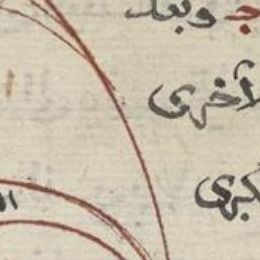 ج وبعد
الأخرى
كبرى